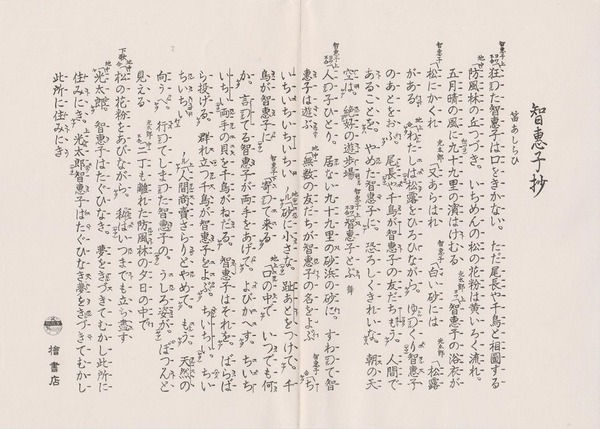 智惠子抄
笛あしらひ
智惠子上 狂つた智惠子は口をきかない。ただ尾長や千鳥と相圖する
地 防風林の丘つづき。いちめんの松の花粉は黄いろく流れ。
五月晴の風に九十九里の濱はけむる 光太郎 智惠子の浴衣が
智惠子 松にかくれ 光太郎 又あらはれ 智惠子 白い砂には 光太郎 松露
がある 地 わたしは松露をひろひながら。ゆつくり智惠子
のあとをおふ。尾長や千鳥が智惠子の友だち もう。人間で
あることを。やめた智惠子に。恐ろしくきれいな。朝の天
空は 絶好の遊歩場 智惠子とぶ
智惠子上 人つ子ひとり。居ない九十九里の砂浜の砂に。すわつて智
惠子は遊ぶ 地 無数の友だちが智惠子の名をよぶ 智惠子 ち
いちいちいちいちい 地 砂に小さな。趾あとをつけて。千
鳥が智惠子に 智惠子 寄つて来る 地 口の中で いつでも何
か。言つてる智惠子が両手をあげて。よびかへす。ちいち
いち 両手の貝を千鳥がねだる。智惠子はそれを。ばらば
ら投げる。群れ立つ千鳥が智惠子をよぶ。ちいちい。ちい
ちいちい 人間商賣さらりと。やめて。もう。天然の
向うへ。行つてしまつた智惠子の。うしろ姿が。ぽつんと
見える 光太郎 二丁も離れた防風林の夕日の中で
下歌 地 松の花粉をあびながら。いつまでも立ち盡す
地 光太郎。智惠子はたぐひなき。夢をきづきてむかし此所に
住みにき。光太郎智惠子はたぐひなき夢をきづきてむかし
此所に住みにき
檜書店